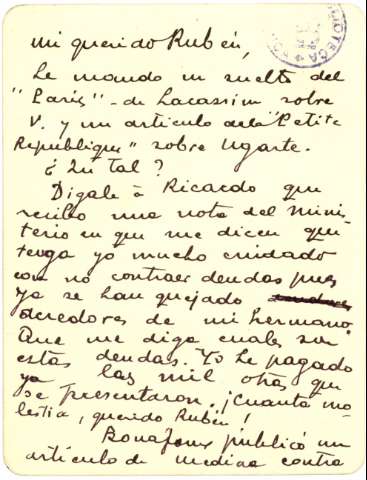 Mi querido Rubén,
Le mando un suelto del
"París" - de Lacassim sobre
V. y un artículo de la "Petite
Republique" sobre Ugarte.
¿Qu tal?
Digale á Ricardo que
recibo una nota del Minis-
terio en que me dicen que
tenga yo mucho cuidado
con no contraer deudas pues
ya se han quejado
acredores de mi hermano.
Que me diga cuales son
estas deudas. Yo he pagado
ya las mil otras que
se presentaron. ¡Cuanta mo-
lestia, querido Rubén!
Bonafoux publicó un
artículo de medina contra
BIBLIOTECA